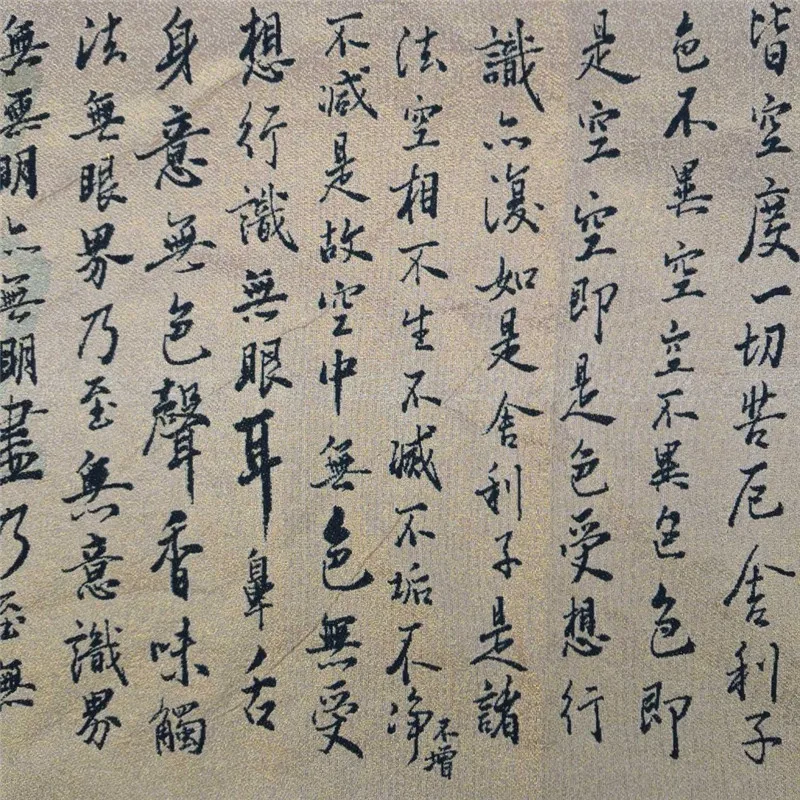 皆空度一切苦厄舍利子
色不異空空不異色色即
是空空即是色受想行
識亦復如是舍利子是諸
法空相不生不滅不垢不淨不增
不減是故空中無色無受
想行識無眼耳鼻舌
身意無色聲香味觸
法無眼界乃至無意識界
無無明亦無明盡乃至無